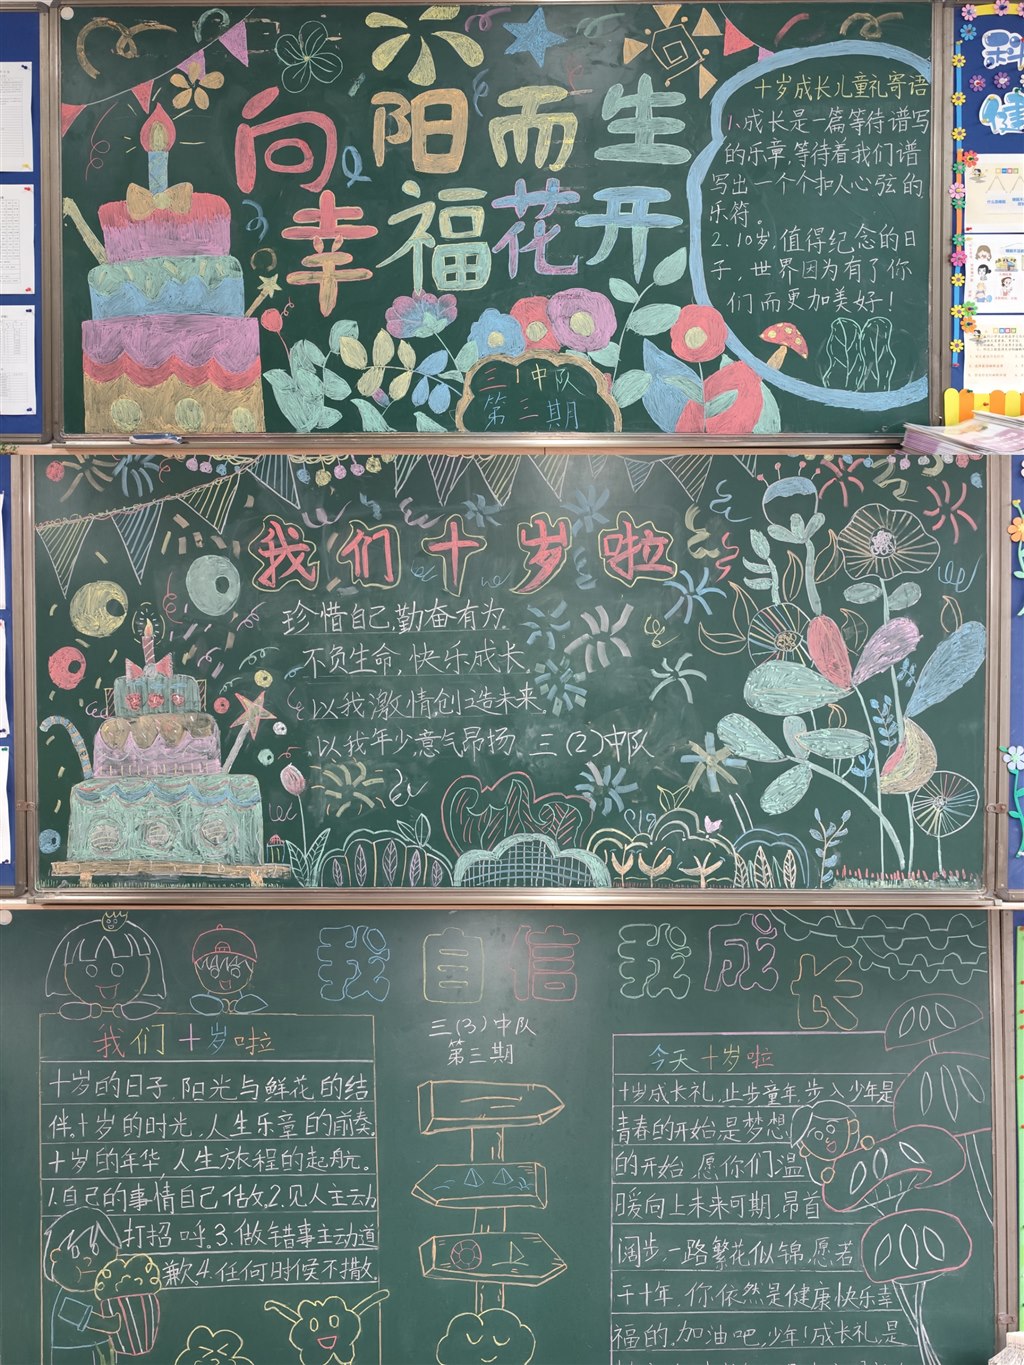 向阳而生
幸福花开
十岁成长儿童礼寄语
1.成长是一篇等待谱写
的乐章,等待着我们谱
写出一个个扣人心弦的
乐符。
2.10岁,值得纪念的日
子,世界因为有了你
们而更加美好!
三1中队
第三期
我们十岁啦
珍惜自己,勤奋有为.
不负生命,快乐成长.
以我激情,创造未来.
以我年少意气昂扬. 三(2)中队
我自信 我成长
三(3)中队
第三期
我们十岁啦
十岁的日子.阳光与鲜花的结
伴.十岁的时光.人生乐章的前奏.
十岁的年华.人生旅程的起航。
1.自己的事情自己做.2.见人主动
打招呼。3.做错事主动道
歉.4.任何时候不撒.
今天十岁啦
十岁成长礼.止步童年.步入少年是
青春的开始是梦想
的开始.愿你们温
暖向上未来可期.昂首
阔步.一路繁花似锦.愿若
干十年.你依然是健康快乐幸
福的.加油吧,少年!成长礼是